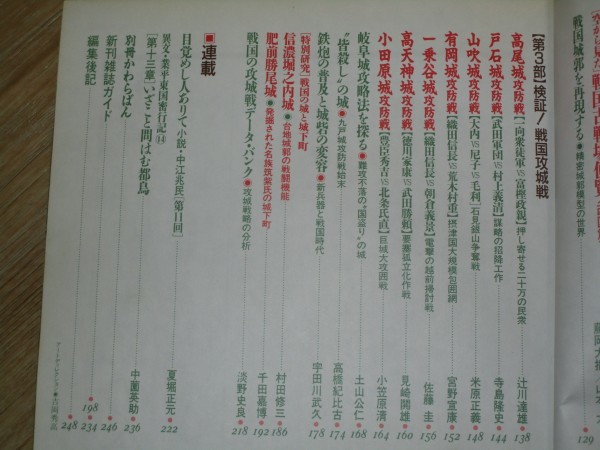 戦国城郭を再現する●精密城郭模型の世界
129
【第3部】検証／戦国攻城戦
高尾城攻防戦【一向衆徒軍VS富樫政親】押し寄せる二十万の民衆 辻川達雄●138
戸石城攻防戦【武田軍団VS村上義清】謀略の招降工作 寺島隆史●144
山吹城攻防戦【大内VS尼子VS毛利】石見銀山争奪戦 米原正義●148
有岡城攻防戦【織田信長VS荒木村重】摂津国大規模包囲網 宮野宣康●152
一乗谷城攻防戦【織田信長VS朝倉義景】電撃の越前掃討戦 佐藤圭●156
高天神城攻防戦【徳川家康VS武田勝頼】要塞孤立化作戦 見崎鬨雄●160
小田原城攻防戦【豊臣秀吉VS北条氏直】巨城大攻囲戦 小笠原清●164
岐阜城攻略法を探る●難攻不落の“国盗り”の城 土山公仁●168
“皆殺し”の城●九戸城攻防戦始末 高橋紀比古●174
鉄炮の普及と城砦の変容●新兵器と戦国時代 宇田川武久●178
[特別研究]戦国の城と城下町
信濃堀之内城●台地城郭の戦闘機能 村田修三●186
肥前勝尾城●発掘された名族筑紫氏の城下町 千田嘉博●192
戦国の攻城戦データ・バンク●攻城戦略の分析 淡野史良●218
■連載
目覚めし人ありて 小説・中江兆民[第11回] 夏堀正元●222
異文・業平東国密行記⑭
[第十三章]いざこと問はむ都鳥 中薗英助●236
別冊かわらばん●198●234
新刊雑誌ガイド●246
編集後記●248